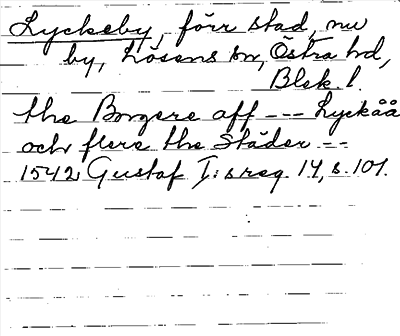 Lyckeby, förr stad, nu
by, Lösens sn, Östra hd,
Blek. l.
the Borgere aff --- Lyckåå
och flere the Städer --
1542 Gustaf I:s reg. 14, s. 101.